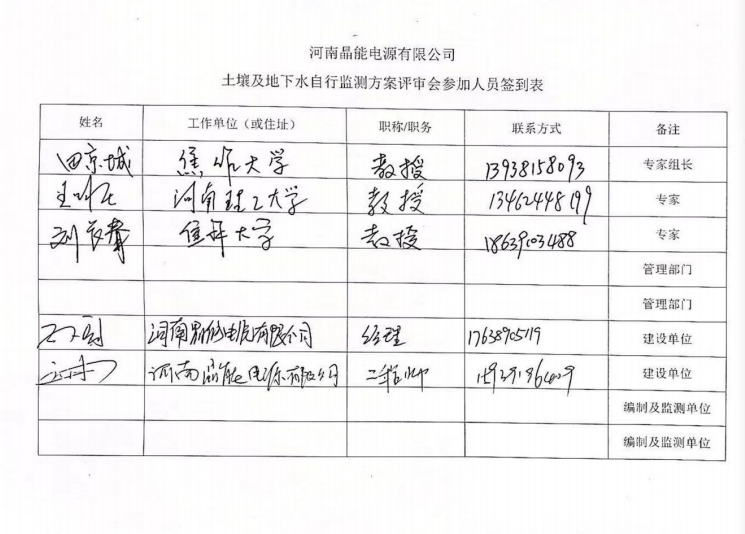 河南晶能电源有限公司
土壤及地下水自行监测方案评审会参加人员签到表
姓名 工作单位（或住址） 职称/职务 联系方式 备注
田京城 焦作大学 教授 13938158093 专家组长
河南理工大学 教授 13462448199 专家
焦作大学 教授 18639003488 专家
管理部门
管理部门
河南晶能电源有限公司 经理 17638905119 建设单位
河南晶能电源有限公司 建设单位
编制及监测单位
编制及监测单位